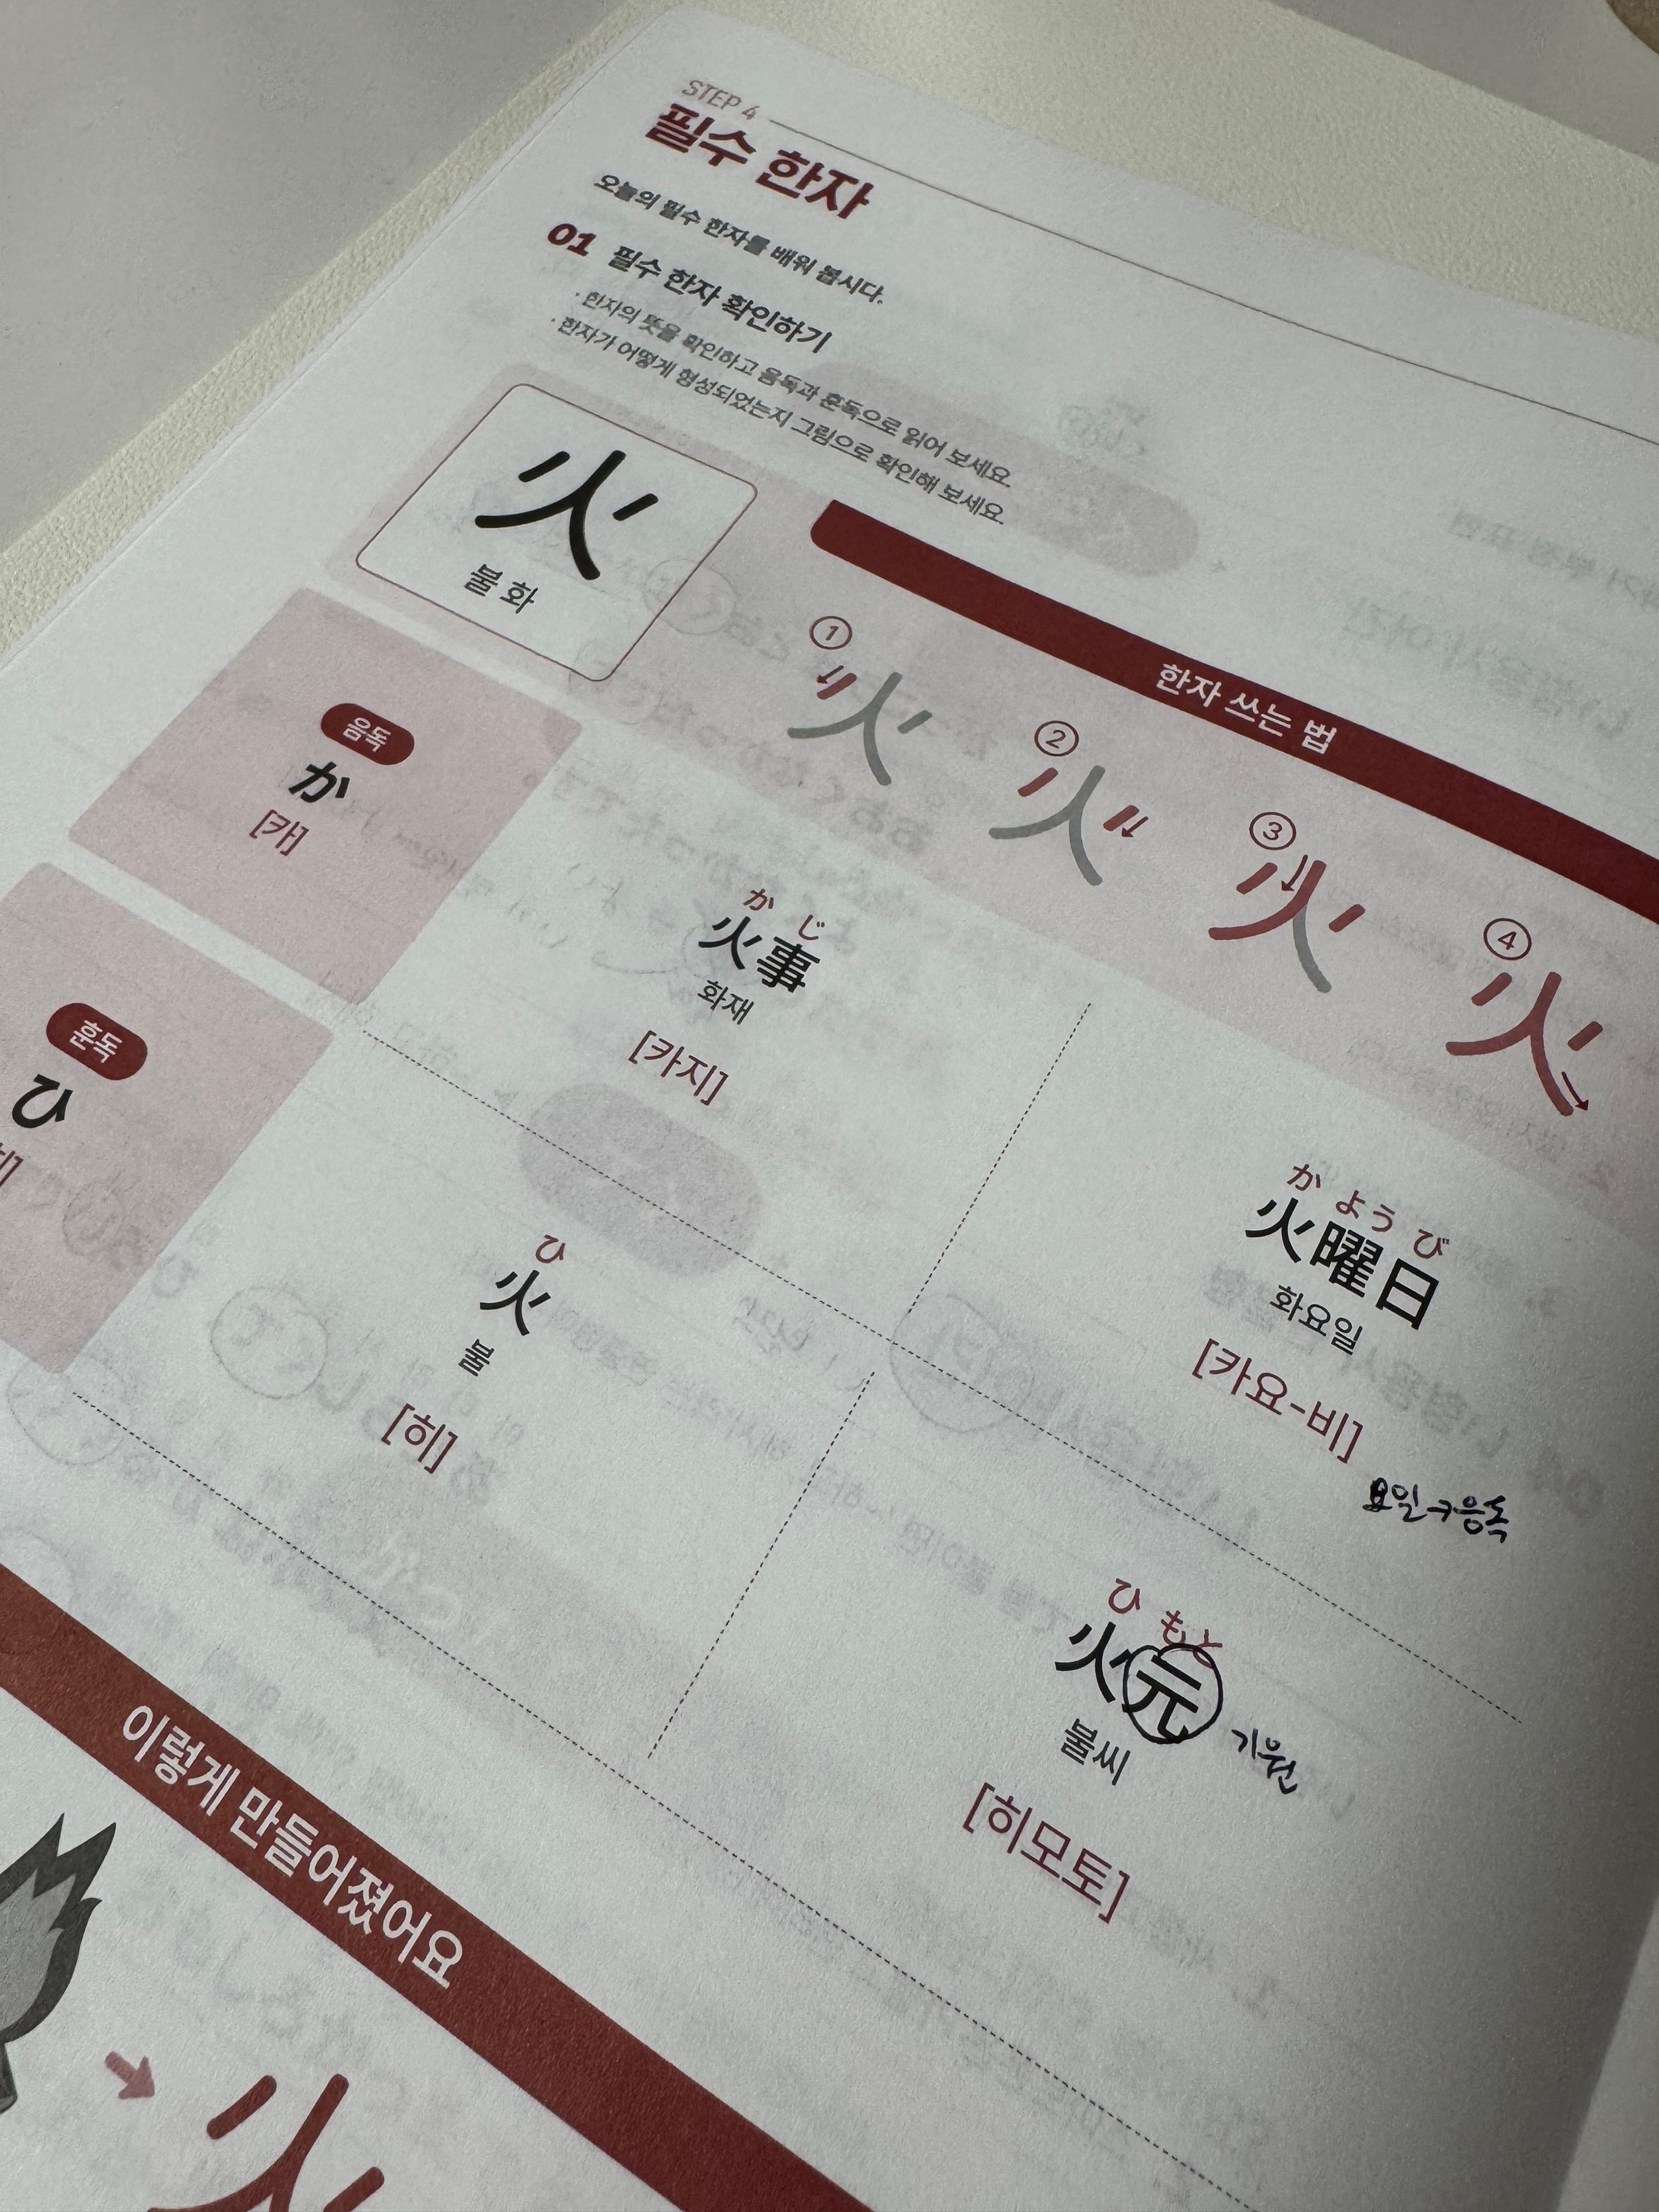 STEP 4
필수 한자
오늘의 필수 한자를 배워 봅시다.
01 필수 한자 확인하기
· 한자의 뜻을 확인하고 음독과 훈독으로 읽어 보세요.
· 한자가 어떻게 형성되었는지 그림으로 확인해 보세요.
火
불 화
한자 쓰는 법
① ② ③ ④
火 火 火 火
음독
か
[카]
かじ
火事
화재
[카지]
かようび
火曜日
화요일
[카요-비]
훈독
ひ
ひ
火
불
[히]
ひもと
火元
기원
불씨
[히모토]
이렇게 만들어졌어요
火